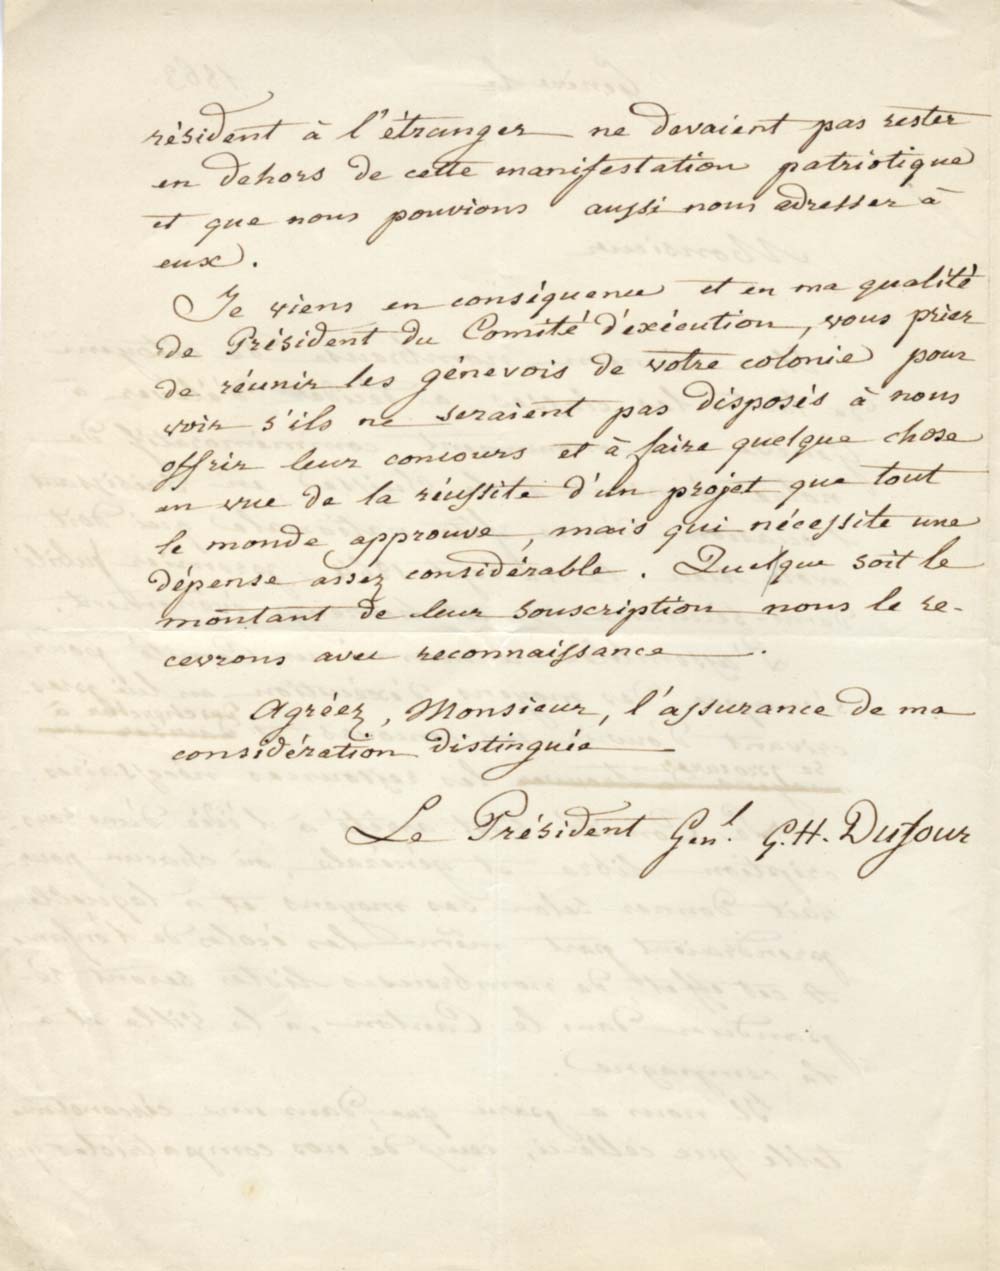 résident à l'étranger ne devaient pas rester
en dehors de cette manifestation patriotique
et que nous pouvions aussi nous adresser à
eux.
Je viens en conséquence et en ma qualité
de Président du Comité d'exécution, vous prier
de réunir les génevois de votre colonie pour
voir s'ils ne seraient pas disposés à nous
offrir leur concours et à faire quelque chose
en vue de la réussite d'un projet que tout
le monde approuve, mais qui nécessite une
dépense assez considérable. Quelque soit le
montant de leur souscription nous le re-
cevrons avec reconnaissance.
Agréez, Monsieur, l'assurance de ma
considération distinguée
Le Président Genl. G.H. Dufour